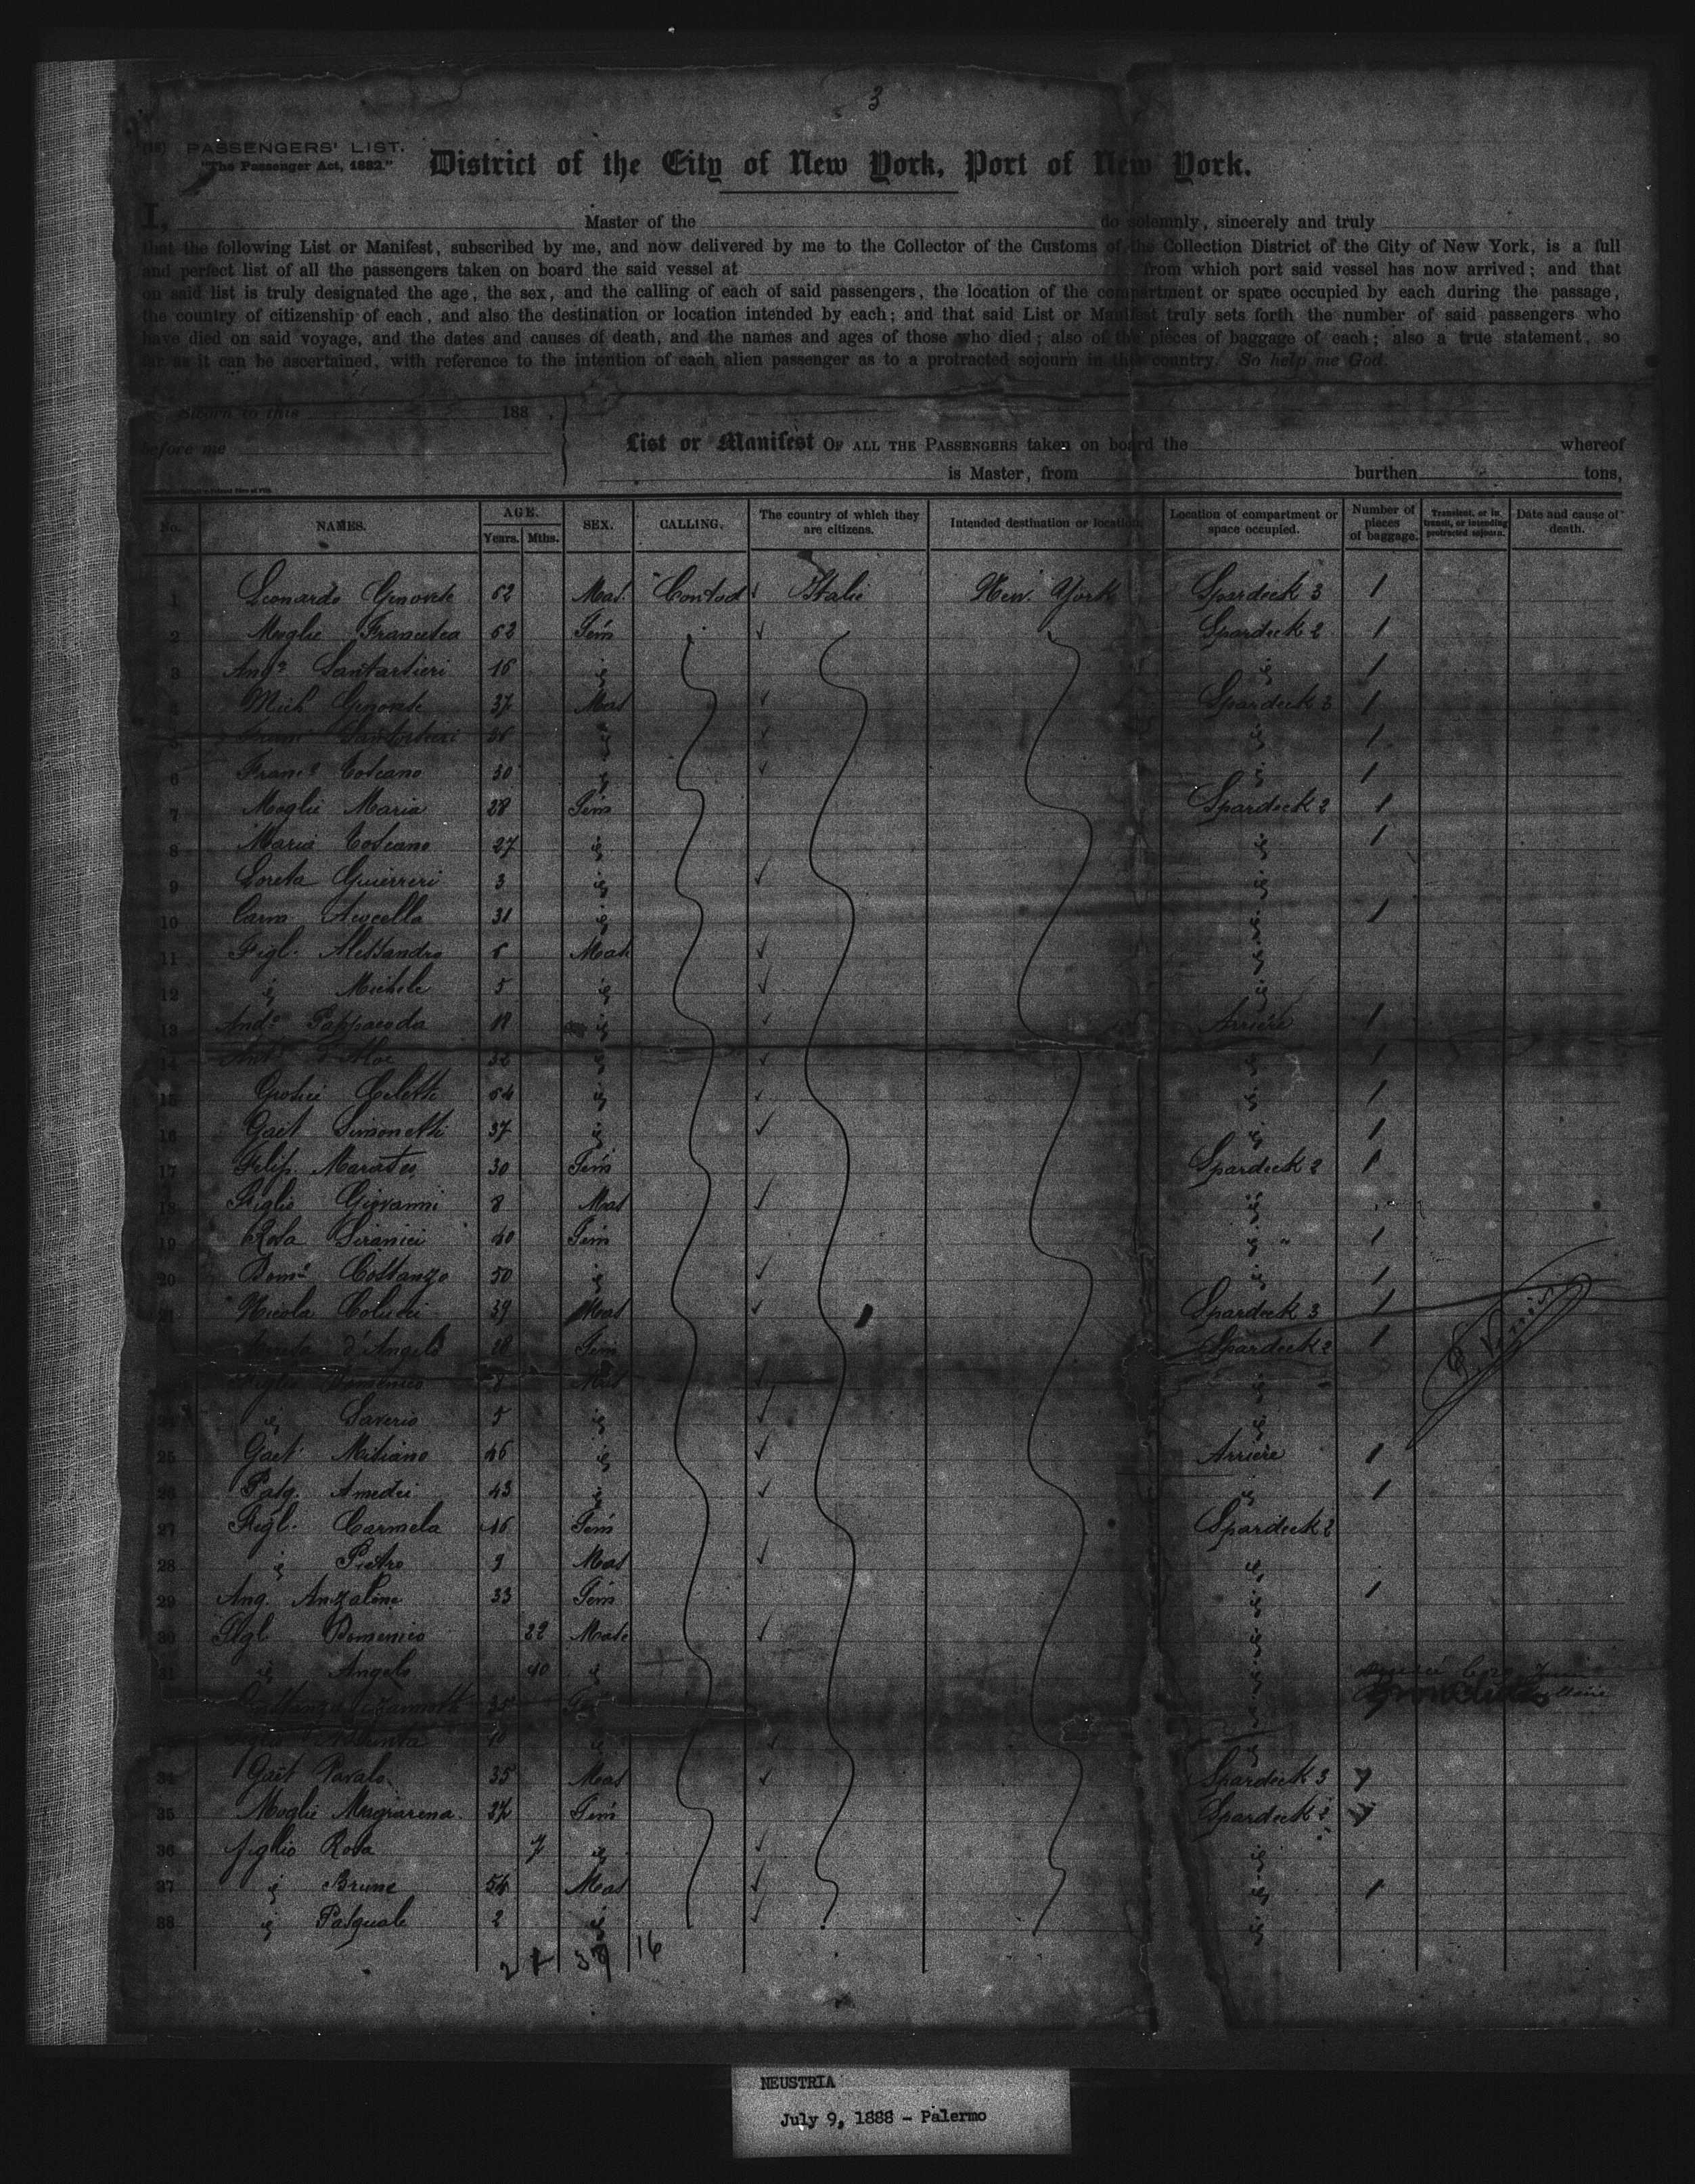 3
(18) PASSENGERS' LIST.
"The Passenger Act, 1882."
District of the City of New York, Port of New York.
I, Master of the do solemnly, sincerely and truly
that the following List or Manifest, subscribed by me, and now delivered by me to the Collector of the Customs of the Collection District of the City of New York, is a full
and perfect list of all the passengers taken on board the said vessel at from which port said vessel has now arrived; and that
on said list is truly designated the age, the sex, and the calling of each of said passengers, the location of the compartment or space occupied by each during the passage,
the country of citizenship of each, and also the destination or location intended by each; and that said List or Manifest truly sets forth the number of said passengers who
have died on said voyage, and the dates and causes of death, and the names and ages of those who died; also of the pieces of baggage of each; also a true statement, so
far as it can be ascertained, with reference to the intention of each alien passenger as to a protracted sojourn in this country. So help me God.
Sworn to this 188 .
before me
List or Manifest OF ALL THE PASSENGERS taken on board the whereof
is Master, from burthen tons,
No. NAMES. AGE. Years. Mths. SEX. CALLING. The country of which they are citizens. Intended destination or location Location of compartment or space occupied. Number of pieces of baggage. Transient, or in transit, or intending protracted sojourn. Date and cause of death.
1 Leonardo Genovese 52 Mas. Italie New York Spardeck 3 1
2 Moglie Francesca 52 Fem Spardeck 2 1
3 Ang. Santartieri 16 id id 1
4 Mich Genovese 37 Mas Spardeck 3 1
5 Santartieri id id 1
6 Franc. Toscano 30 id id 1
7 Moglie Maria 28 Fem Spardeck 2 1
8 Maria Toscano 27 id id 1
9 Loreta Guierreri 3 id id
10 Carm. Acocella 31 id id 1
11 Figl. Alessandro 6 Mas id
12 id Michele 5 id id
13 And. Pappacoda 18 id Arriere 1
14 Ant. d'Aloe 32 id id 1
15 Celetti 54 id id 1
16 Gaet Simonetti 37 id id 1
17 Felip. Marateo 30 Fem Spardeck 2 1
18 Figlio Giovanni 8 Mas id
19 Rosa Siranici 40 Fem id 1
20 Dom. Costanzo 50 id id 1
21 Nicola Colucci 39 Mas Spardeck 3 1
d'Angelo 28 Fem Spardeck 2 1
Figlio Domenico Mas id
24 id Saverio 5 id id
25 Gaet Misiano 46 id Arriere 1
26 Pasq. Amedei 43 id id 1
27 Figl. Carmela 16 Fem Spardeck 2
28 id Pietro 9 Mas id
29 Ang. Anzalone 33 Fem id 1
30 Figl Domenico 22 Mas id
31 id Angelo 40 id id
35 Fem id
Assunta 10 id id
34 Gaet Pavalo 35 Mas Spardeck 3
35 Moglie 32 Fem Spardeck 2
36 figlio Rosa 7 id id
37 id Bruno 54 Mas id 1
38 id Pasquale 2 id id
37 16
NEUSTRIA
July 9, 1888 - Palermo